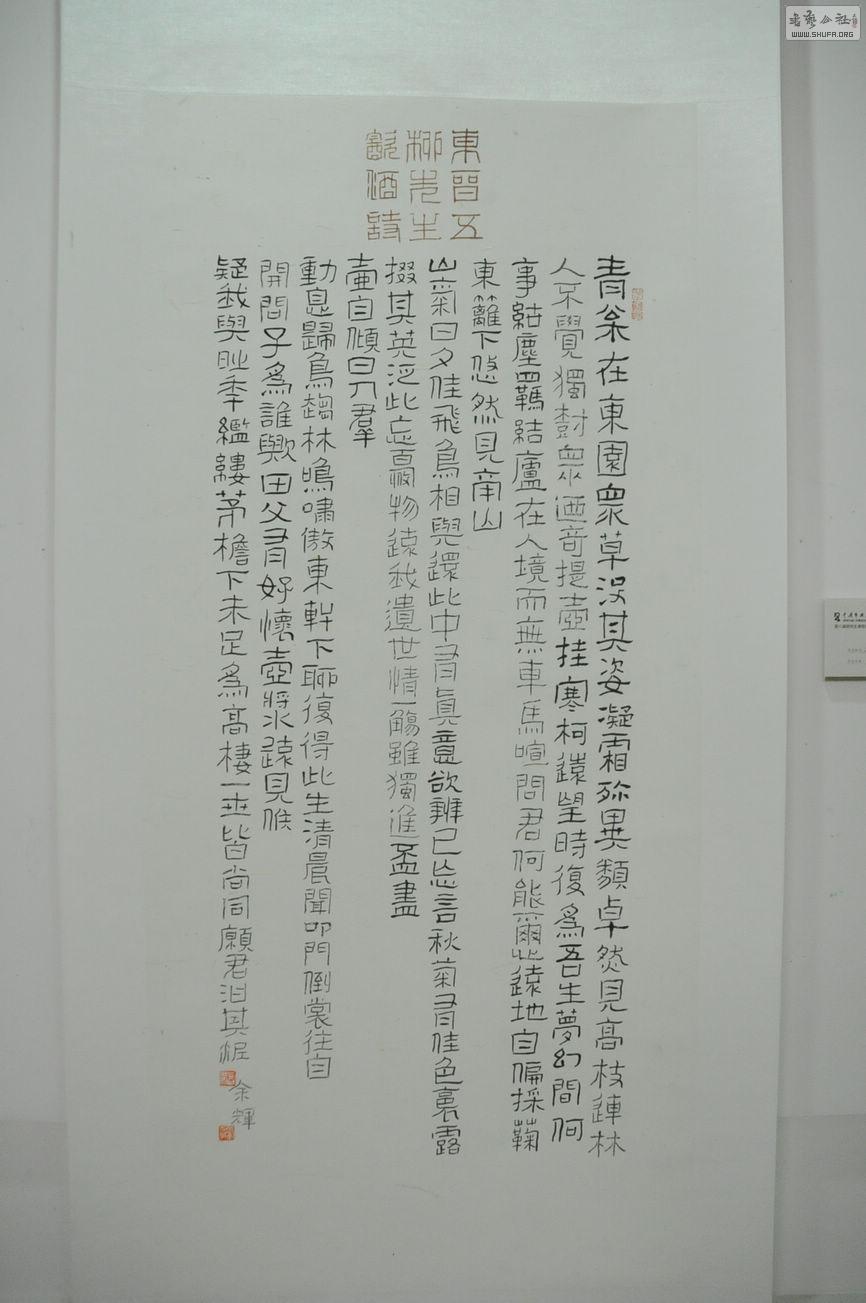 東晉五
柳先生
飲酒詩
青松在東園衆草沒其姿凝霜殄異類卓然見高枝連林
人不覺獨樹衆迺奇提壺挂寒柯遠望時復爲吾生夢幻間何
事紲塵羈結廬在人境而無車馬喧問君何能爾心遠地自偏採蘜
東籬下悠然見南山
山氣日夕佳飛鳥相與還此中有真意欲辨已忘言秋菊有佳色裛露
掇其英泛此忘憂物遠我遺世情一觴雖獨進盃盡
壺自傾日入羣
動息歸鳥趨林鳴嘯傲東軒下聊復得此生清晨聞叩門倒裳往自
開問子爲誰歟田父有好懷壺漿遠見候
疑我與時乖繿縷茅檐下未足爲高棲一世皆尚同願君汩其泥
余輝
WWW.SHUFA.ORG